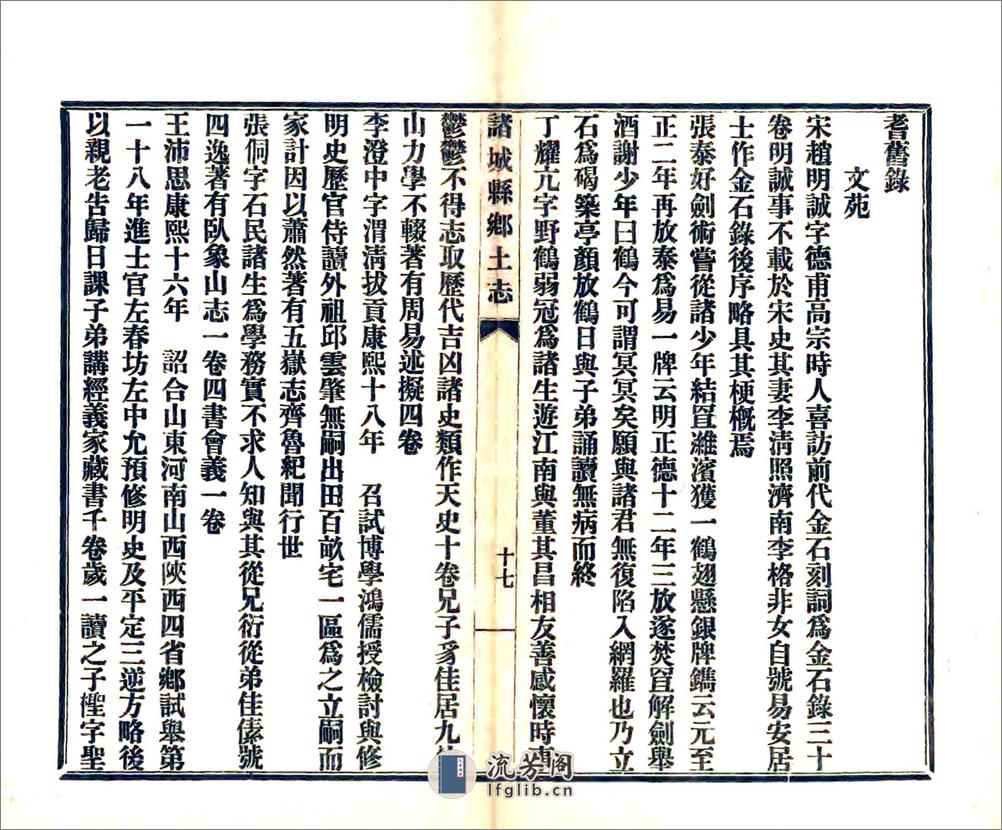 耆舊錄
文苑
宋趙明誠字德甫高宗時人喜訪前代金石刻詞爲金石錄三十
卷明誠事不載於宋史其妻李淸照濟南李格非女自號易安居
士作金石錄後序略具其梗槪焉
張泰好劍術嘗從諸少年結罝濰濱獲一鶴翅懸銀牌鐫云元至
正二年再放泰爲易一牌云明正德十二年三放遂焚罝解劍舉
酒謝少年曰鶴今可謂冥冥矣願與諸君無復陷入網羅也乃立
石爲碣築亭顏放鶴日與子弟誦讀無病而終
丁耀亢字野鶴弱冠爲諸生遊江南與董其昌相友善感懷時事
諸城縣鄉土志
十七
鬱鬱不得志取歷代吉凶諸史類作天史十卷兄子豸佳居九仙
山力學不輟著有周易述擬四卷
李澄中字渭淸拔貢康熙十八年 召試博學鴻儒授檢討與修
明史歷官侍讀外祖邱雲肇無嗣出田百畝宅一區爲之立嗣而
家計因以蕭然著有五嶽志齊魯紀聞行世
張侗字石民諸生爲學務實不求人知與其從兄衍從弟佳傃號
四逸著有臥象山志一卷四書會義一卷
王沛思康熙十六年 詔合山東河南山西陝西四省鄉試舉第
一十八年進士官左春坊左中允預修明史及平定三逆方略後
以親老告歸日課子弟講經義家藏書千卷歲一讀之子樫字聖
流芳閣
lfglib.cn